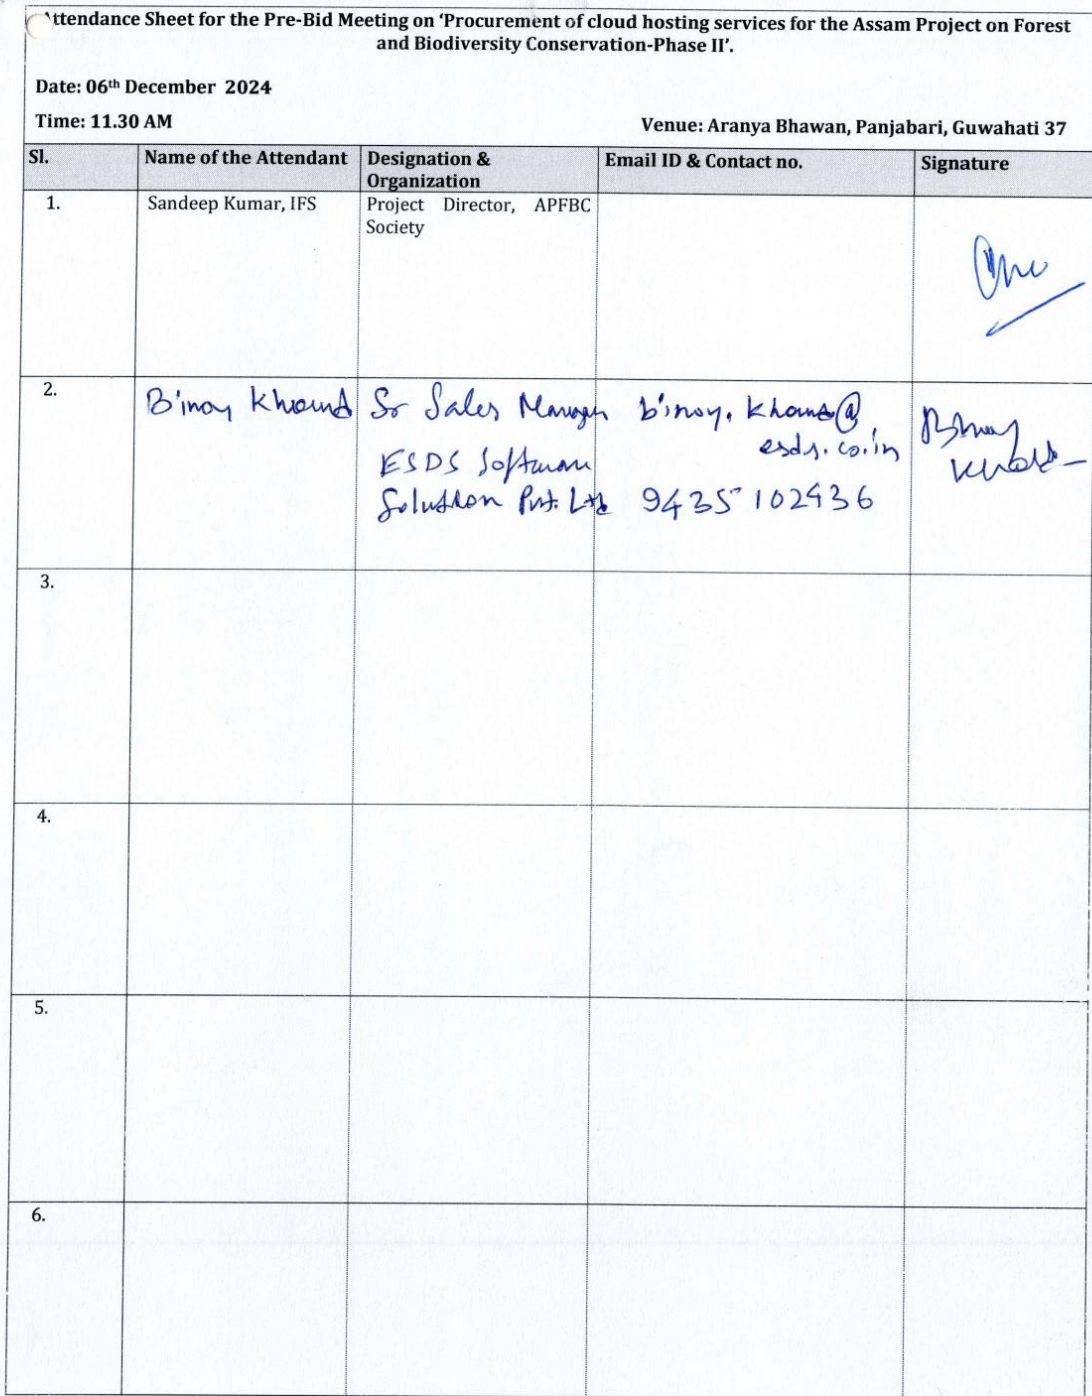 Attendance Sheet for the Pre-Bid Meeting on ‘Procurement of cloud hosting services for the Assam Project on Forest
and Biodiversity Conservation-Phase II’.
Date: 06th December 2024
Time: 11.30 AM
Venue: Aranya Bhawan, Panjabari, Guwahati 37
Sl. Name of the Attendant Designation & Organization Email ID & Contact no. Signature
1. Sandeep Kumar, IFS Project Director, APFBC
Society
2. Binoy Khound Sr Sales Manager binoy.khound@
esds.co.in
ESDS Software
Solution Pvt. Ltd 9435102436
Binoy
3.
4.
5.
6.